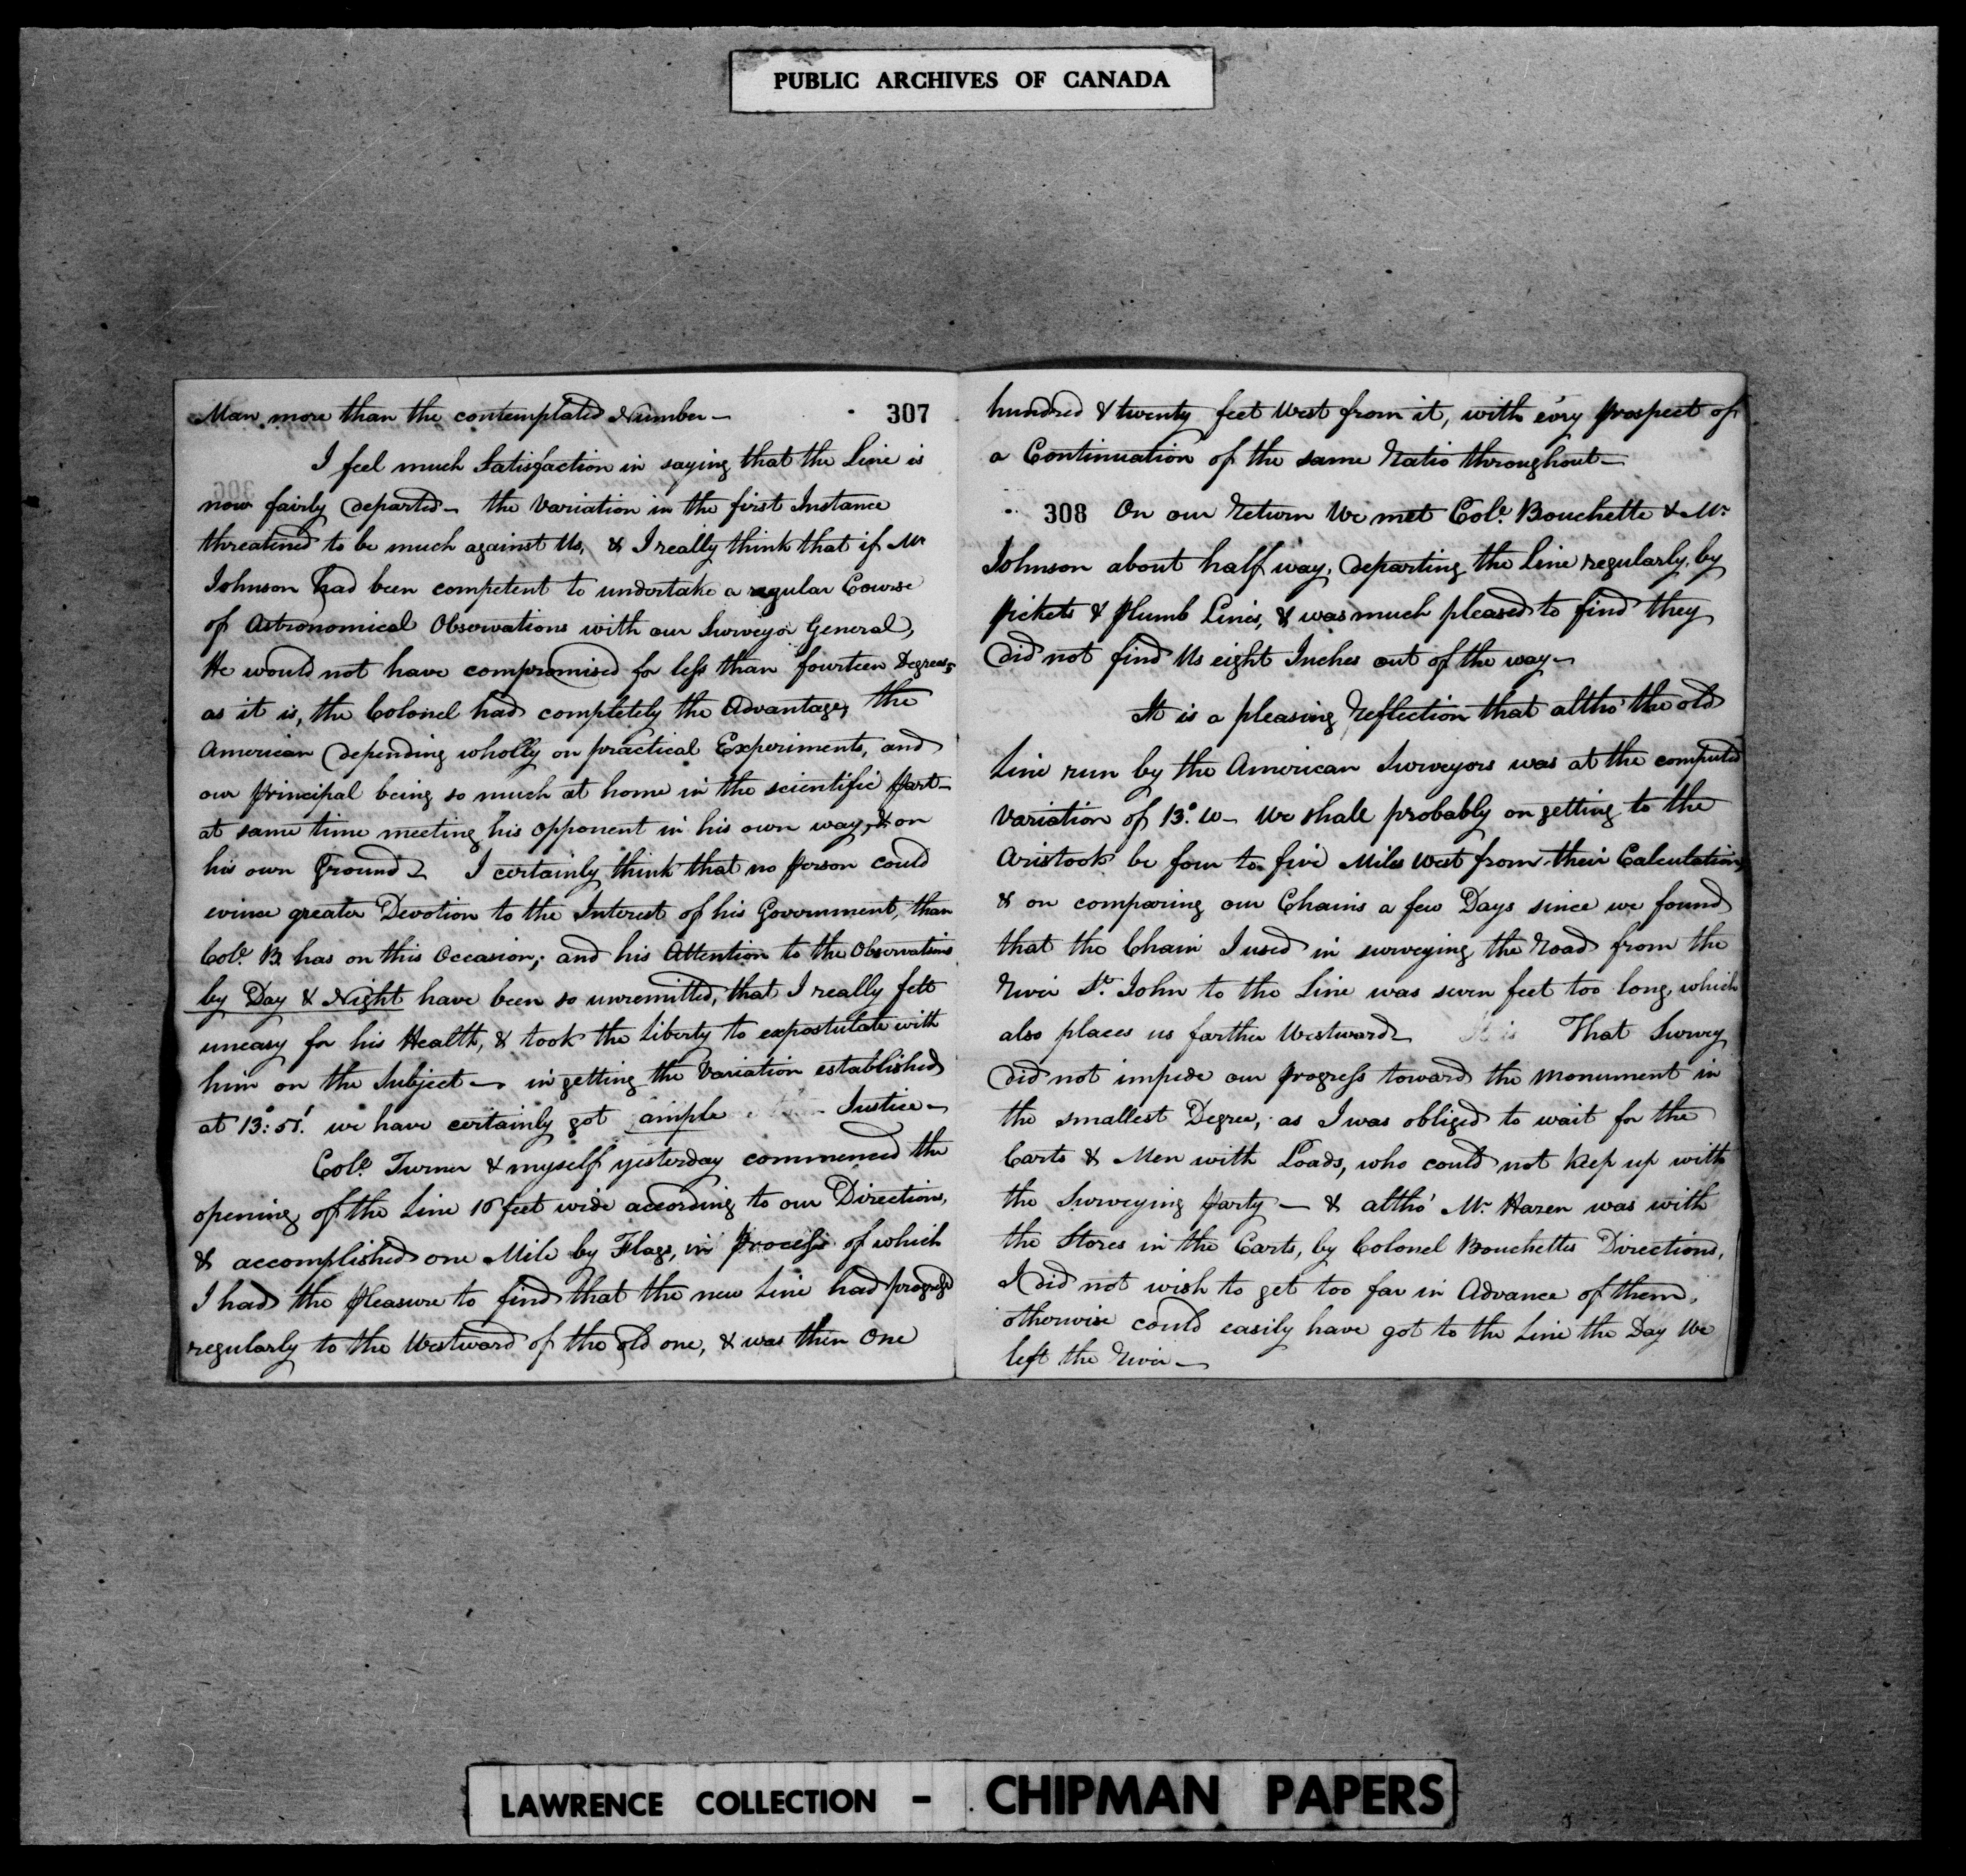 PUBLIC ARCHIVES OF CANADA
Man more than the contemplated Number —
307
I feel much Satisfaction in saying that the Line is
now fairly departed — the Variation in the first Instance
threatened to be much against Us, & I really think that if Mr
Johnson had been competent to undertake a regular Course
of Astronomical Observations with our Surveyor General,
He would not have compromised for less than fourteen Degrees,
as it is, the Colonel had completely the Advantage, the
American depending wholly on practical Experiments, and
our principal being so much at home in the scientific part —
at same time meeting his opponent in his own way, & on
his own Ground — I certainly think that no person could
evince greater Devotion to the Interest of his Government, than
Colo. B. has on this Occasion; and his Attention to the Observations
by Day & Night have been so unremitted, that I really felt
uneasy for his Health, & took the Liberty to expostulate with
him on the Subject — in getting the Variation established
at 13: 51' we have certainly got ample Justice —
Colo. Turner & myself yesterday commenced the
opening of the Line 16 feet wide according to our Directions,
& accomplished one Mile by Flags, in process of which
I had the pleasure to find that the new Line had progress'd
regularly to the Westward of the old one, & was then One
hundred & twenty feet West from it, with ev'ry prospect of
a Continuation of the same Ratio throughout —
308 On our Return We met Colo. Bouchette & Mr.
Johnson about half way, departing the Line regularly, by
pickets & plumb Lines, & was much pleased to find they
did not find Us eight Inches out of the way —
It is a pleasing reflection that altho' the old
Line run by the American Surveyors was at the computed
Variation of 13°. W — We shall probably on getting to the
Aristook be four to five Miles West from their Calculation,
& on comparing our Chains a few Days since we found
that the Chain I used in surveying the Road from the
River St. John to the Line was seven feet too long, which
also places us farther Westward — That Survey
did not impede our progress toward the Monument in
the smallest Degree, as I was obliged to wait for the
Carts & Men with Loads, who could not keep up with
the Surveying party — & altho' Mr. Hazen was with
the Stores in the Carts, by Colonel Bouchettes Directions,
I did not wish to get too far in Advance of them,
otherwise could easily have got to the Line the Day We
left the River —
LAWRENCE COLLECTION - CHIPMAN PAPERS